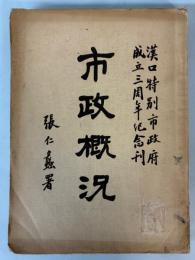 漢口特別市政府
成立三周年纪念刊
市政概況
張仁蠡署